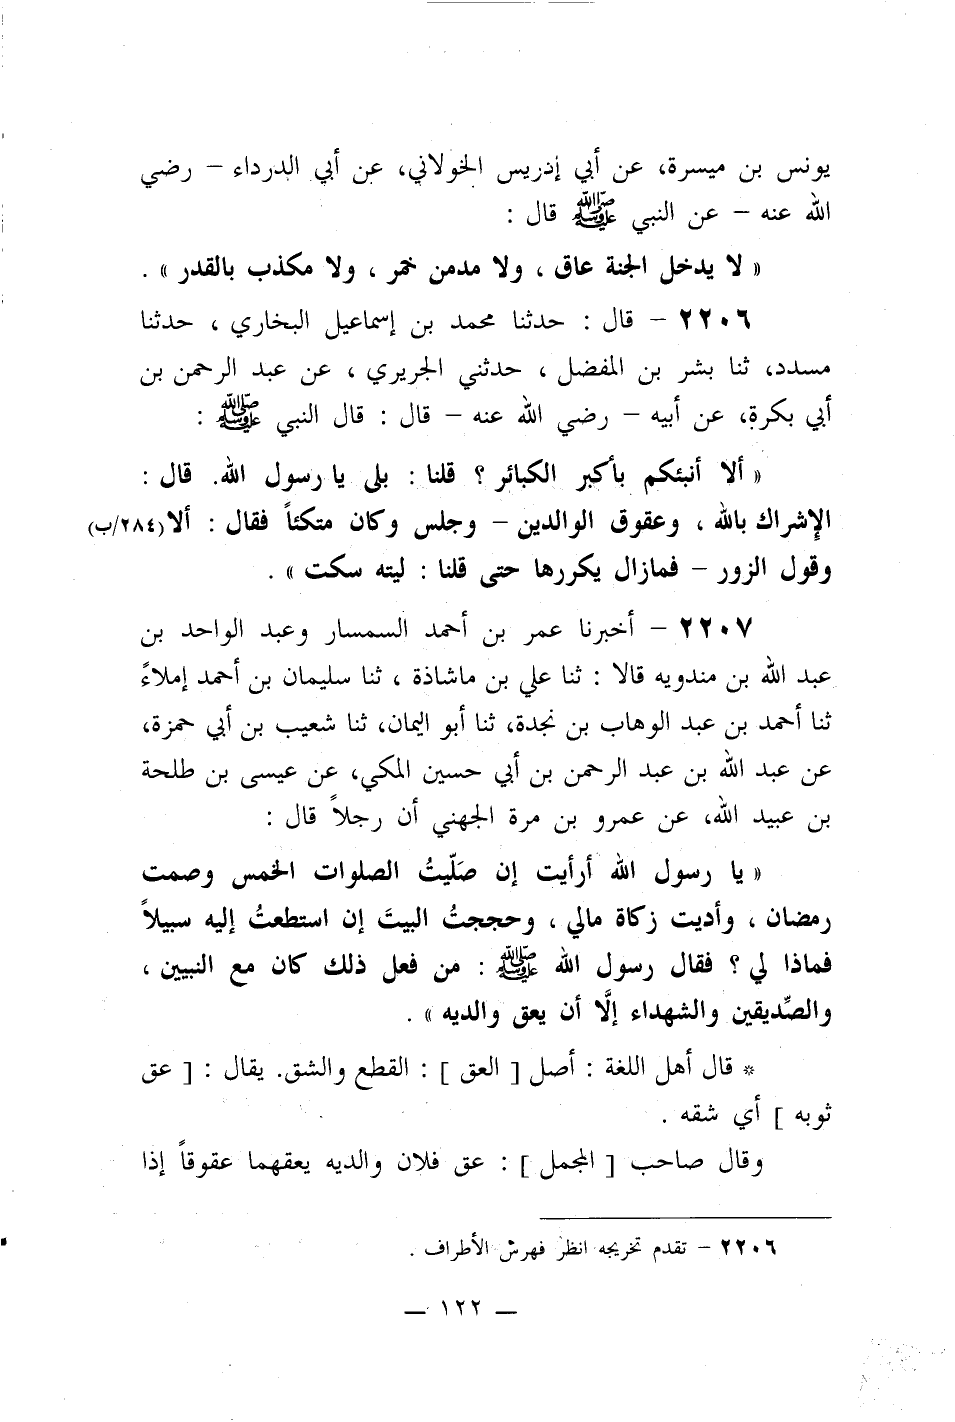 يونس بن ميسرة، عن أبي إدريس الخولاني، عن أبي الدرداء – رضي
الله عنه – عن النبي ﷺ قال :
« لا يدخل الجنة عاق ، ولا مدمن خمر ، ولا مكذب بالقدر » .
٢٢٠٦ – قال : حدثنا محمد بن إسماعيل البخاري ، حدثنا
مسدد، ثنا بشر بن المفضل ، حدثني الجريري ، عن عبد الرحمن بن
أبي بكرة، عن أبيه – رضي الله عنه – قال : قال النبي ﷺ :
« ألا أنبئكم بأكبر الكبائر ؟ قلنا : بلى يا رسول الله. قال :
الإشراك بالله ، وعقوق الوالدين – وجلس وكان متكئاً فقال : ألا (٢٨٤/ب)
وقول الزور – فمازال يكررها حتى قلنا : ليته سكت » .
٢٢٠٧ – أخبرنا عمر بن أحمد السمسار وعبد الواحد بن
عبد الله بن مندويه قالا : ثنا علي بن ماشاذة ، ثنا سليمان بن أحمد إملاءً
ثنا أحمد بن عبد الوهاب بن نجدة، ثنا أبو اليمان، ثنا شعيب بن أبي حمزة،
عن عبد الله بن عبد الرحمن بن أبي حسين المكي، عن عيسى بن طلحة
بن عبيد الله، عن عمرو بن مرة الجهني أن رجلاً قال :
« يا رسول الله أرأيت إن صَلّيتُ الصلوات الخمس وصمت
رمضان ، وأديت زكاة مالي ، وحججتُ البيتَ إن استطعتُ إليه سبيلاً
فماذا لي ؟ فقال رسول الله ﷺ : من فعل ذلك كان مع النبيين ،
والصِّديقين والشهداء إلَّا أن يعق والديه » .
* قال أهل اللغة : أصل [ العق ] : القطع والشق. يقال : [ عق
ثوبه ] أي شقه .
وقال صاحب [ المجمل ] : عق فلان والديه يعقهما عقوقاً إذا
٢٢٠٦ – تقدم تخريجه انظر فهرش الأطراف .
— ١٢٢ —